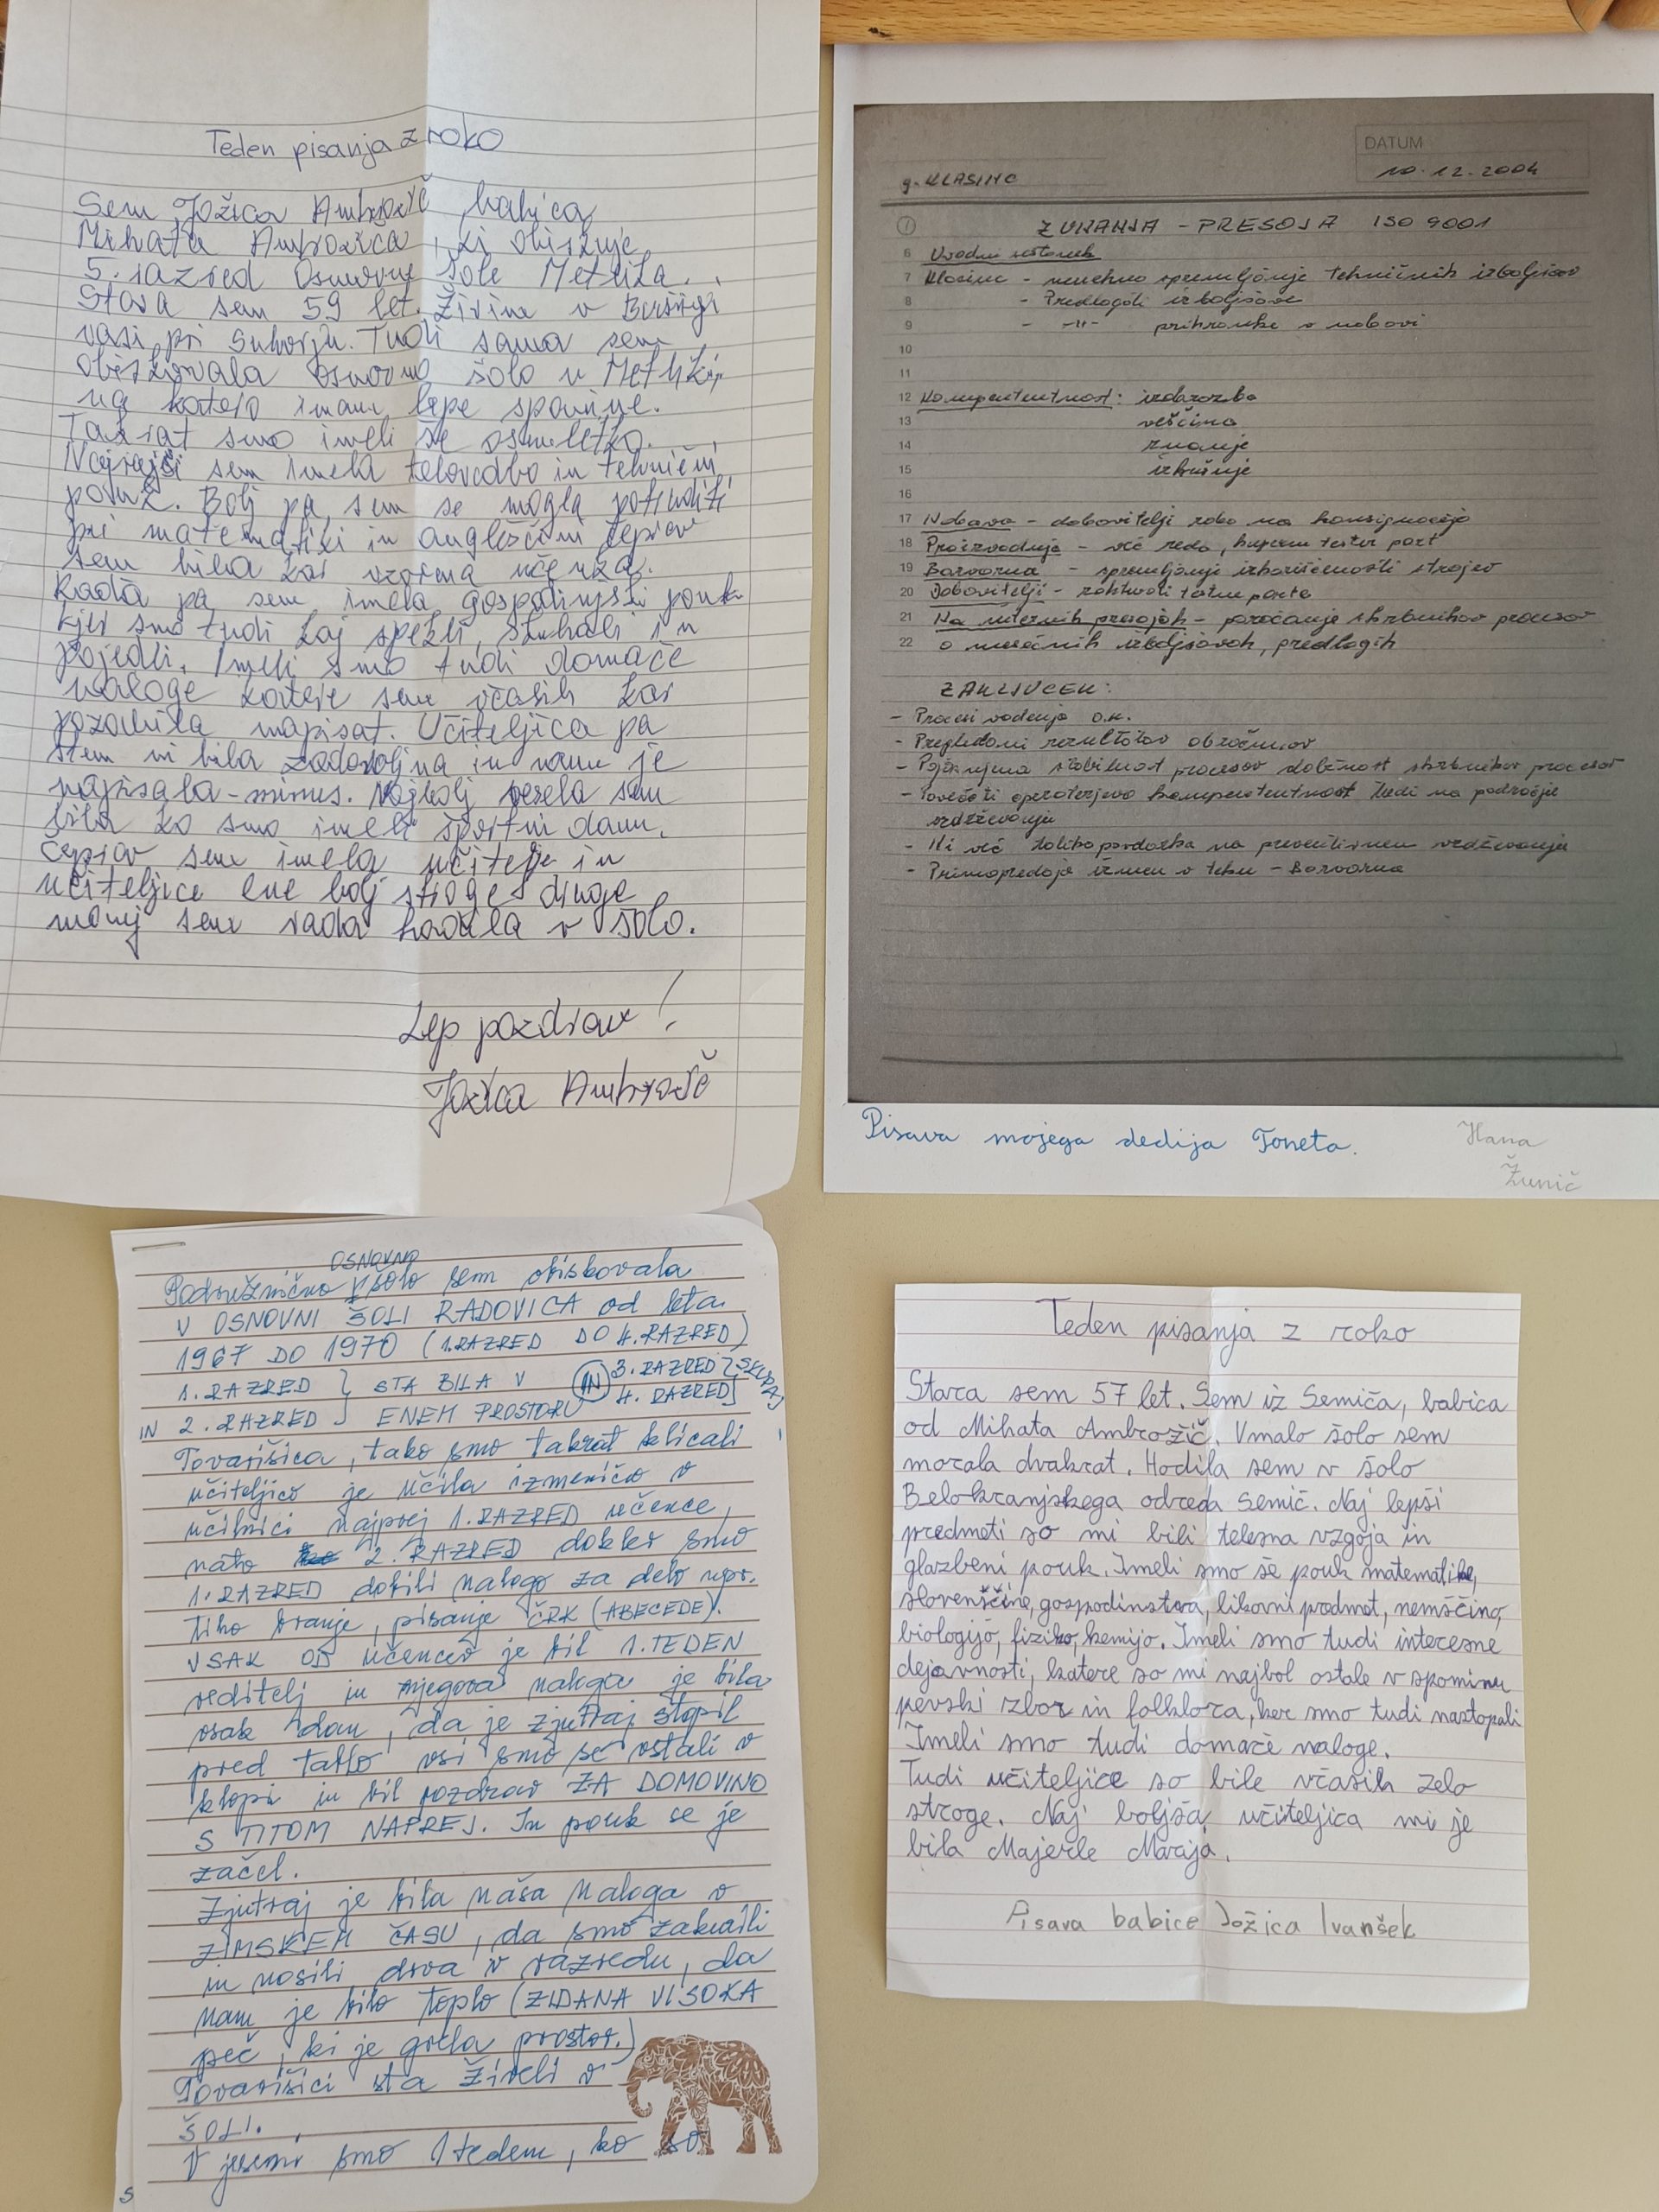 Teden pisanja z roko
Sem Jožica Ambrožič babica
Mihata Ambrožiča, ki obiskuje
5. razred Osnovne šole Metlika.
Stara sem 59 let. Živim v Bušinji
vasi pri Suhorju. Tudi sama sem
obiskovala osnovno šolo v Metliki,
na katero imam lepe spomine.
Takrat smo imeli še osemletko.
Najrajši sem imela telovadbo in tehnični
pouk. Bolj pa sem se mogla potruditi
pri matematiki in angleščini čeprav
sem bila kar vzorna učenka.
Rada pa sem imela gospodinjski pouk
kjer smo tudi kaj spekli, skuhali in
pojedli. Imeli smo tudi domače
naloge katere sem včasih kar
pozabila napisat. Učiteljica pa
stem ni bila zadovoljna in nam je
napisala - minus. Najbolj vesela sem
bila ko smo imeli športni dan.
Čeprav sem imela učitelje in
učiteljice ene bolj stroge druge
manj sem rada hodila v šolo.
Lep pozdrav!
Jožica Ambrožič
DATUM
10.12.2004
g. KLASINC
7 ZUNANJA - PRESOJA ISO 9001
6 Uvodni sestanek
7 Klasinc - nenehno spremljanje tehničnih izboljšav
8 - Predlogi izboljšave
9 - -"- prihranke v nabavi
10
11
12 Kompententnost: izobrazba
13 veščina
14 znanje
15 izkušnje
16
17 Nabava - dobavitelji robo na konsignacijo
18 Proizvodnja - več reda, kupcem tester port
19 - spremljanje izkoriščenosti strojev
20 Dobavitelji -
21 Na internih presojah - poročanje skrbnikov procesov
22 o mesečnih izboljšavah, predlogih
ZAKLJUČEK:
- Procesi vodenja O.K.
- Pregledani rezultatov obračunov
- stabilnost procesov dolžnost skrbnikov procesov
- Povečati operaterjevo kompententnost tudi na področje
vzdrževanja
- Ni več toliko povdarka na preventivnem vzdrževanju
- Primopredaja izmen v teku -
Pisava mojega dedija Toneta.
Hana
Žunič
OSNOVNO
Podružnično šolo sem obiskovala
V OSNOVNI ŠOLI RADOVICA od leta
1967 DO 1970 (1. RAZRED DO 4. RAZRED)
1. RAZRED } STA BILA V IN 3. RAZRED } SKUPAJ
IN 2. RAZRED } ENEM PROSTORU 4. RAZRED
Tovarišica, tako smo takrat klicali
učiteljico je učila izmenično v
učilnici najprej 1. RAZRED učence,
nato 2. RAZRED dokler smo
1. RAZRED dobili nalogo za delo npr.
tiho branje, pisanje ČRK (ABECEDE).
VSAK OD učencev je bil 1. TEDEN
reditelj in njegova naloga je bila
vsak dan, da je zjutraj stopil
pred tablo vsi smo se vstali v
klopi in bil pozdrav ZA DOMOVINO
S TITOM NAPREJ. In pouk se je
začel.
Zjutraj je bila naša naloga v
ZIMSKEM ČASU, da smo zakurili
in nosili drva v razredu, da
nam je bilo toplo (ZIDANA VISOKA
peč, ki je grela prostor.)
Tovarišici sta živeli v
ŠOLI.
V jeseni smo 1 teden, ko so
Teden pisanja z roko
Stara sem 57 let. Sem iz Semiča, babica
od Mihata Ambrožič. V malo šolo sem
morala dvakrat. Hodila sem v šolo
Belokranjskega odreda Semič. Naj lepši
predmeti so mi bili telesna vzgoja in
glazbeni pouk. Imeli smo še pouk matematike,
slovenščine, gospodinstva, likovni predmet, nemščino,
biologijo, fiziko, kemijo. Imeli smo tudi interesne
dejavnosti, katere so mi najbol ostale v spominu
pevski izbor in folklora, ker smo tudi nastopali
Imeli smo tudi domače naloge.
Tudi učiteljice so bile včasih zelo
stroge. Naj boljša učiteljica mi je
bila Majerle Marija.
Pisava babice Jožica Ivanšek